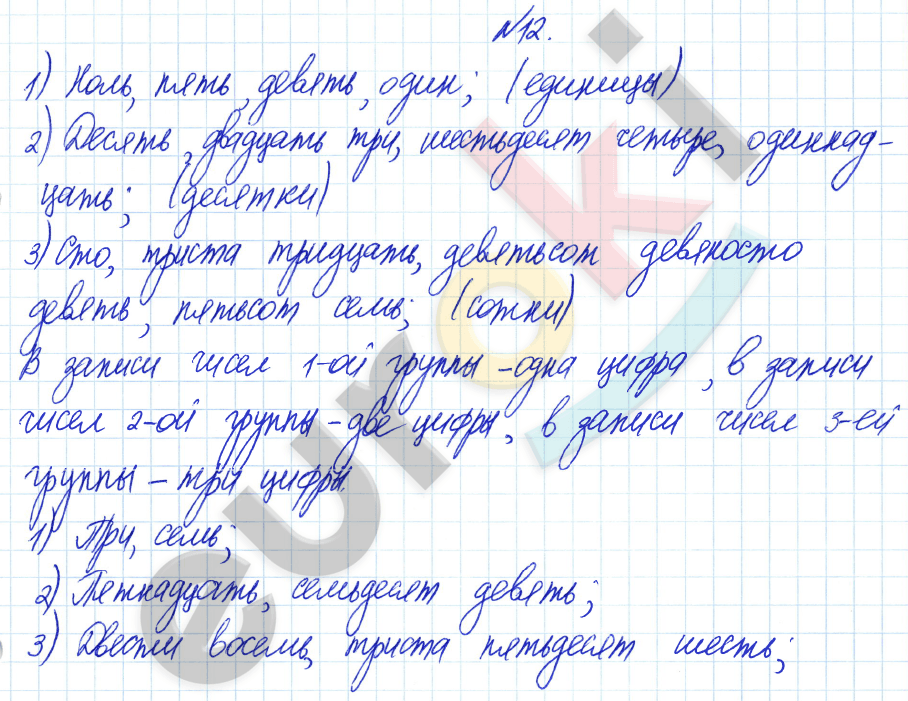 №12.
1) Ноль, пять, девять, один; (единицы)
2) Десять, двадцать три, шестьдесят четыре, одиннад-
цать; (десятки)
3) Сто, триста тридцать, девятьсот девяносто
девять, пятьсот семь; (сотни)
В записи чисел 1-ой группы - одна цифра, в записи
чисел 2-ой группы - две цифры, в записи чисел 3-ей
группы - три цифры.
1) Три, семь;
2) Пятнадцать, семьдесят девять;
3) Двести восемь, триста пятьдесят шесть;
euroki